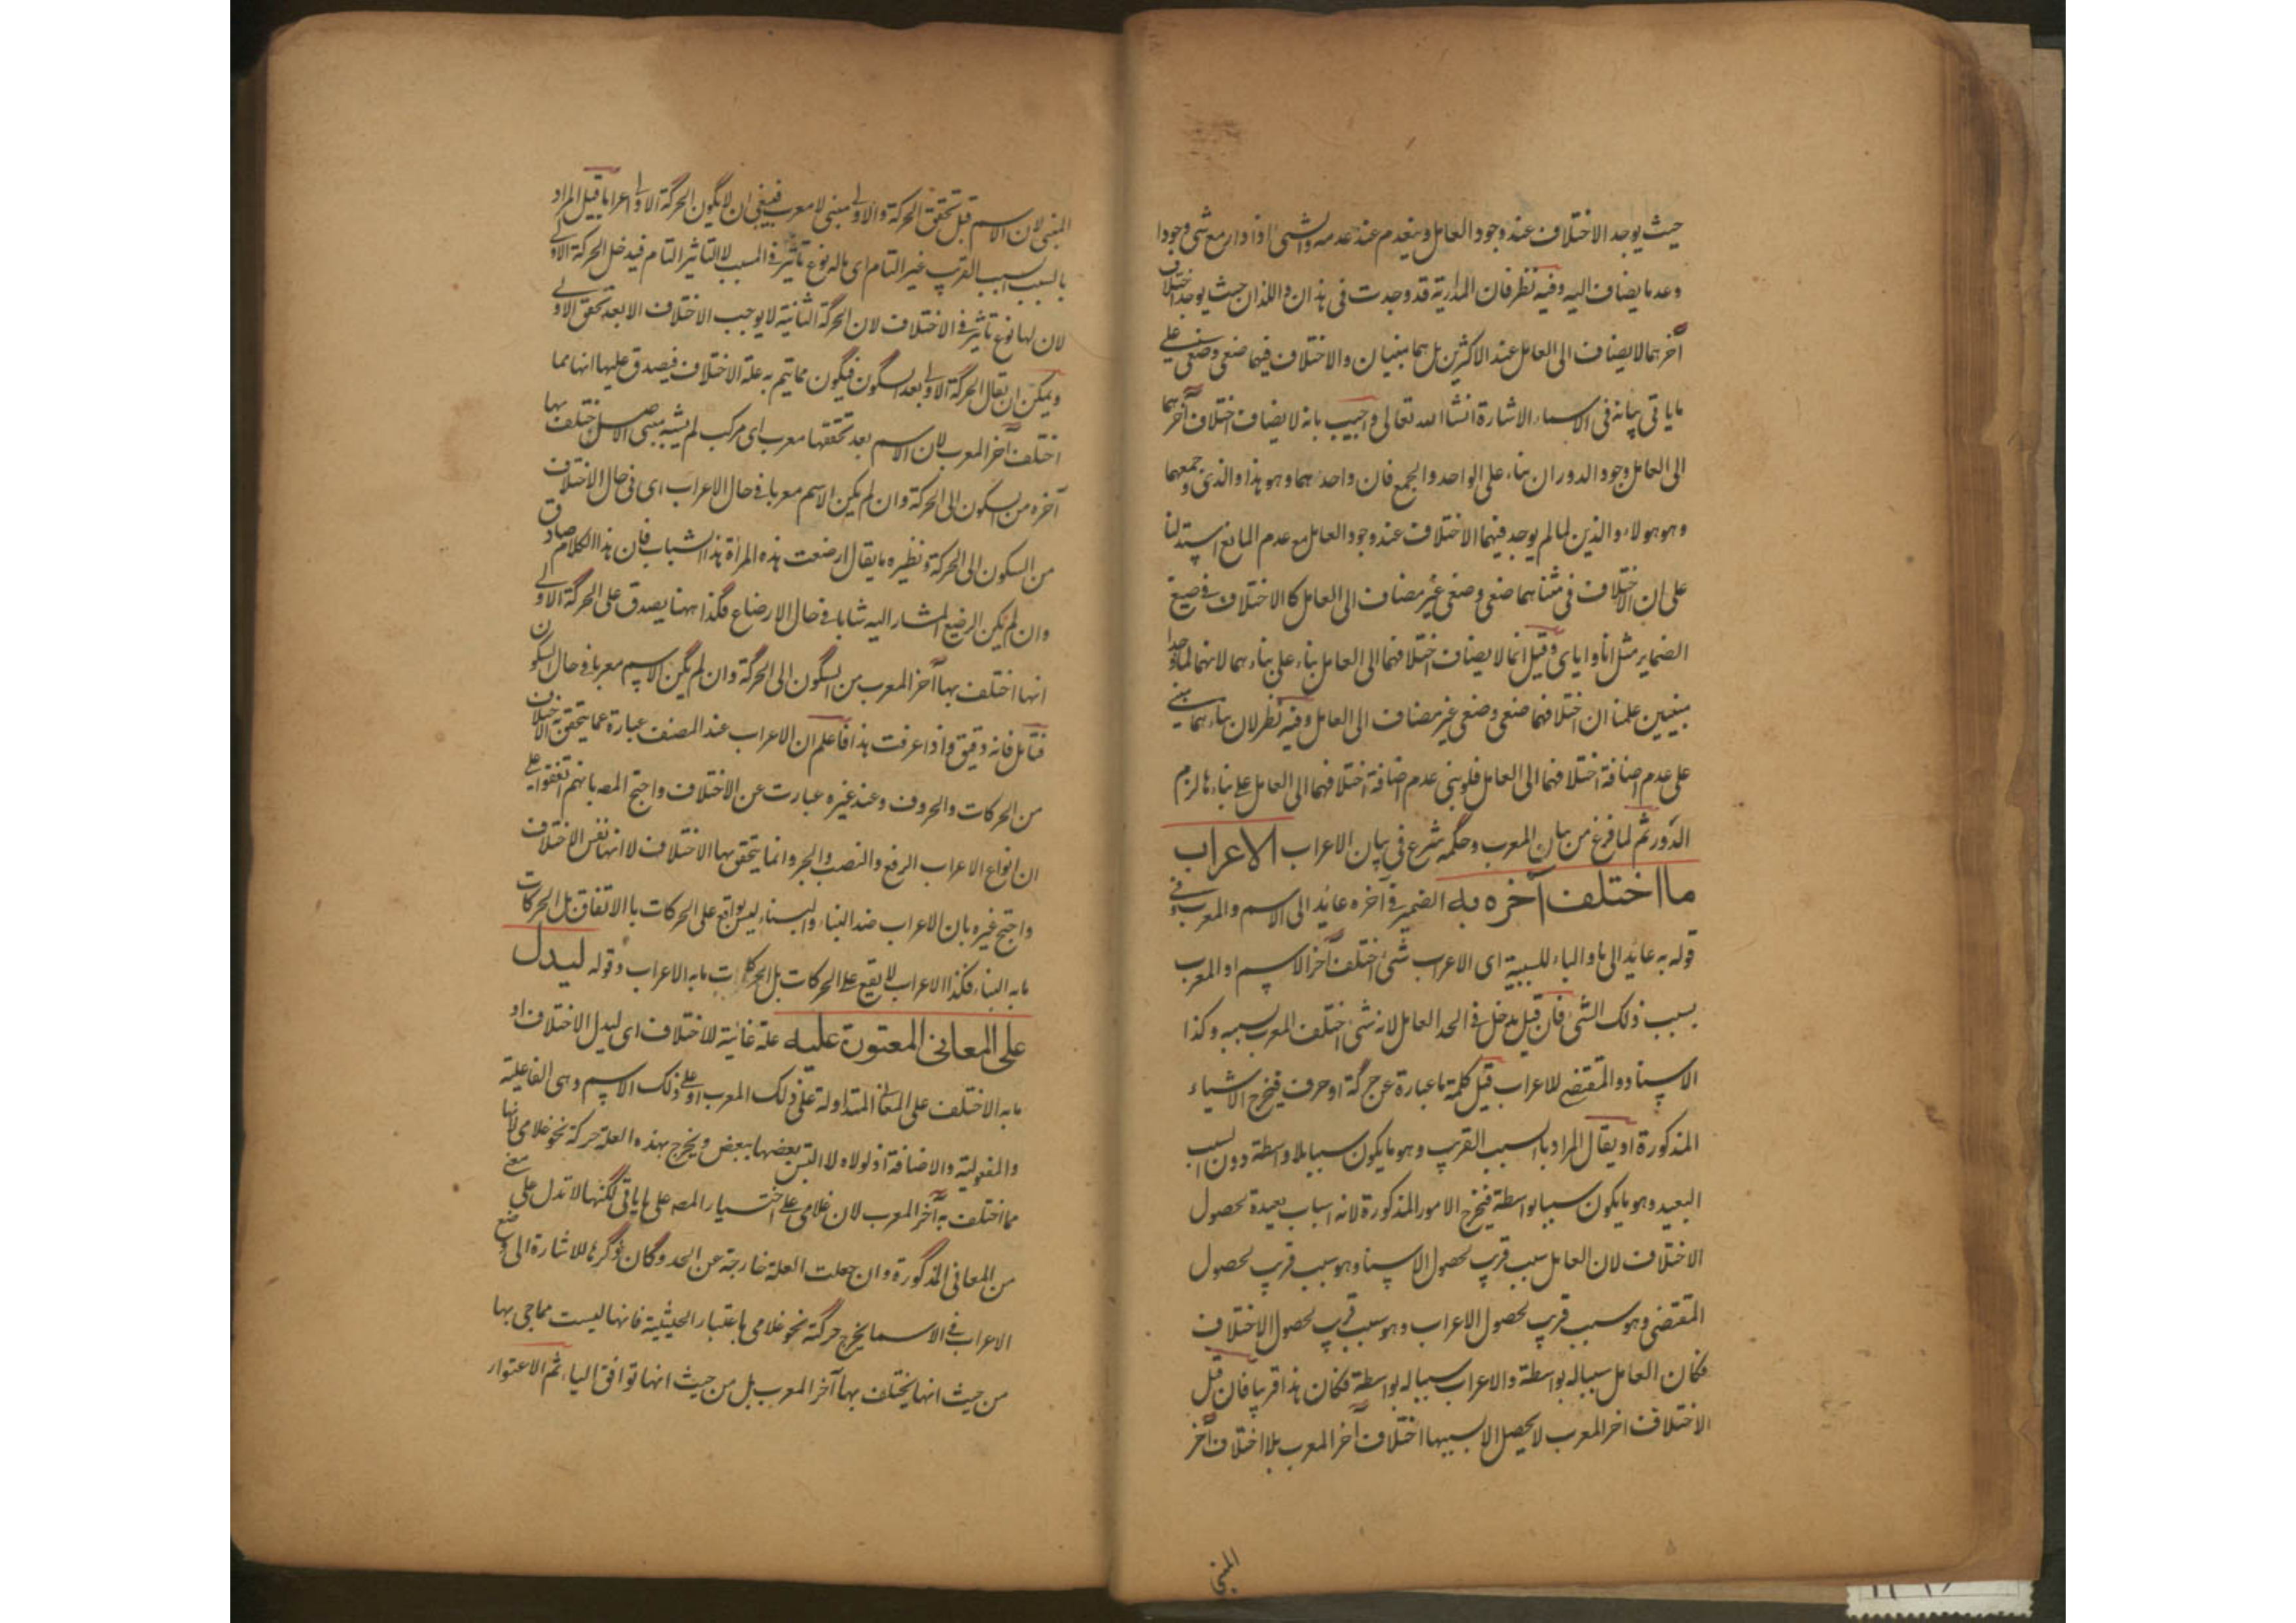 حيث يوجد الاختلاف عند وجود العامل وينعدم عند عدمه والشئ اذا دار مع شئ وجودا
وعدما يضاف اليه وفيه نظر فان المدارية قد وجدت فى هذان واللذان حيث يوجد اختلاف
آخرهما لا يضاف الى العامل عند الاكثرين بل هما مبنيان والاختلاف فيهما صنعى وضعى على
ما ياتى بيانه فى الاسماء الاشارة انشاالله تعالى واجيب بانه لا يضاف اختلاف آخرهما
الى العامل وجود الدوران بناء على الواحد والجمع فان واحدهما وهو هذا والذى وجمعهما
وهو هولاء والذين لما لم يوجد فيهما الاختلاف عند وجود العامل مع عدم المانع استدلنا
على ان الاختلاف فى مثناهما صنعى وضعى غير مضاف الى العامل كالاختلاف فى صيغ
الضماير مثل انا واياى وقيل انما لا يضاف اختلافهما الى العامل بناء على بناءهما لانهما لما وجدا
مبنيين علمنا ان اختلافهما صنعى وضعى غير مضاف الى العامل وفيه نظر لان بناءهما مبنى
على عدم اضافة اختلافهما الى العامل فلو بنى عدم اضافة اختلافهما الى العامل على بناءهما لزم
الدور ثم لما فرغ من بيان المعرب وحكمه شرع فى بيان الاعراب الاعراب
ما اختلف آخره به الضمير فى آخره عايد الى الاسم والمعرب وفى
قوله به عايد الى ما والباء للسببية اى الاعراب شئ اختلف آخر الاسم او المعرب
بسبب ذلك الشئ فان قيل يدخل فى الحد العامل لانه شئ اختلف المعرب بسببه وكذا
الاسناد والمقتضى للاعراب قيل كلمة ما عبارة عن حركة او حرف فيخرج الاشياء
المذكورة او يقال المراد بالسبب القريب وهو ما يكون سببا بلا واسطة دون السبب
البعيد وهو ما يكون سببا بواسطة فيخرج الامور المذكورة لانه اسباب بعيدة لحصول
الاختلاف لان العامل سبب قريب لحصول الاسناد وهو سبب قريب لحصول
المقتضى وهو سبب قريب لحصول الاعراب وهو سبب قريب لحصول الاختلاف
فكان العامل سببا له بواسطة والاعراب سببا له بواسطة فكان هذا قريبا فان قيل
الاختلاف اخر المعرب لا يحصل الا بسببها اختلاف آخر المعرب بلا اختلاف آخر
المبنى
المبنى لان الاسم قبل تحقق الحركة والاولى مبنى لا معرب فينبغى ان لا يكون الحركة الاولى اعرابا قيل المراد
بالسبب السبب القريب غير التام اى ما له نوع تاثير فى المسبب لا التاثير التام فيدخل الحركة الاولى
لان لها نوع تاثير فى الاختلاف لان الحركة الثانية لا يوجب الاختلاف الا بعد تحقق الاولى
ويمكن ان يقال الحركة الاولى بعد السكون فيكون مما يتم به علة الاختلاف فيصدق عليها انها مما
اختلف آخر المعرب لان الاسم بعد تحققها معرب اى مركب لم يشبه مبنى الاصل اختلف بها
آخره من السكون الى الحركة وان لم يكن الاسم معربا فى حال الاعراب اى فى حال الاختلاف
من السكون الى الحركة ونظيره ما يقال ارضعت هذه المرأة هذا الشباب فان هذا الكلام صادق
وان لم يكن الرضيع المشار اليه شابا فى حال الارضاع فكذا ههنا يصدق على الحركة الاولى
انها اختلف بها آخر المعرب من السكون الى الحركة وان لم يكن الاسم معربا فى حال السكون
فتامل فانه دقيق واذا عرفت هذا فاعلم ان الاعراب عند المصنف عبارة عما يتحقق به الاختلاف
من الحركات والحروف وعند غيره عبارت عن الاختلاف واحتج المصـ بانهم اتفقوا على
ان انواع الاعراب الرفع والنصب والجر وانما يتحقق بها الاختلاف لا انها نفس الاختلاف
واحتج غيره بان الاعراب ضد البناء والبناء ليس بواقع على الحركات بالاتفاق بل الحركات
ما به البناء فكذا الاعراب لا يقع على الحركات بل الحركات ما به الاعراب وقوله ليدل
على المعانى المعتورة عليه علة غائية للاختلاف اى ليدل الاختلاف او
ما به الاختلف على المعانى المتداولة على ذلك المعرب او على ذلك الاسم وهى الفاعلية
والمفعولية والاضافة اذ لولاه لالتبس بعضها ببعض ويخرج بهذه العلة حركة نحو غلامى لانها
مما اختلف به آخر المعرب لان غلامى على اختيار المصـ على ما ياتى لكنها لا تدل على معنى
من المعانى المذكورة وان جعلت العلة خارجة عن الحد وكان ذكرها للاشارة الى وضع
الاعراب فى الاسما يخرج حركة نحو غلامى باعتبار الحيثية فانها ليست مما جى بها
من حيث انها يختلف بها آخر المعرب بل من حيث انها توافق الياء ثم الاعتوار